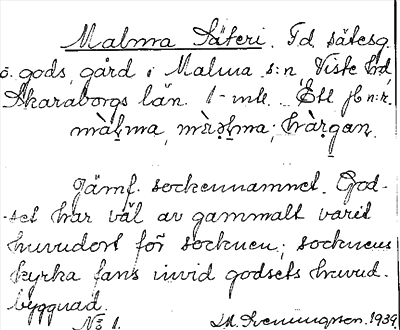 Malma Säteri. F.d. sätesg.
o. gods, gård i Malma s:n, Viste hd,
Skaraborgs län. 1 mtl. Ett jb.n:r.
Jämf. sockennamnet. God-
-set har väl av gammalt varit
huvudort för socknen; socknens
kyrka fans invid godsets huvud-
byggnad.
N:o 1. 1939